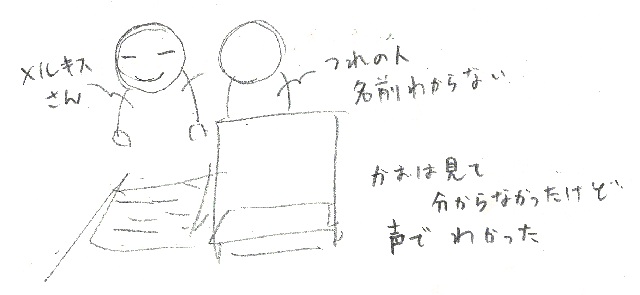 メルキス
さん
つれの人
名前わからない
かおは見て
分からなかったけど
声でわかった